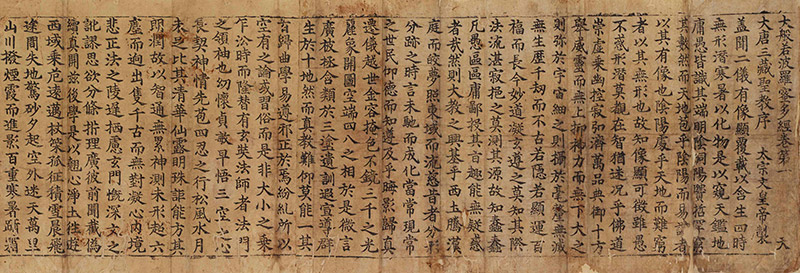 大般若波羅蜜多經卷第一 天
大唐三藏聖教序 太宗文皇帝製
蓋聞二儀有像顯覆載以含生四時
無形潛寒暑以化物是以窺天鑑地
庸愚皆識其端明陰洞陽賢哲罕窮
其數然而天地苞乎陰陽而易識者
以其有像也陰陽處乎天地而難窮
者以其無形也故知像顯可徵雖愚
不惑形潛莫覩在智猶迷況乎佛道
崇虛乘幽控寂弘濟萬品典御十方
舉威靈而無上抑神力而無下大之
則彌於宇宙細之則攝於毫釐無滅
無生歷千劫而不古若隱若顯運百
福而長今妙道凝玄遵之莫知其際
法流湛寂挹之莫測其源故知蠢蠢
凡愚區區庸鄙投其旨趣能無疑惑
者哉然則大教之興基乎西土騰漢
庭而皎夢照東域而流慈昔者分形
分跡之時言未馳而成化當常現常
之世民仰德而知遵及乎晦影歸真
遷儀越世金容掩色不鏡三千之光
麗象開圖空端四八之相於是微言
廣被拯含類於三塗遺訓遐宣導群
生於十地然而真教難仰莫能一其
旨歸曲學易遵邪正於焉紛糺所以
空有之論或習俗而是非大小之乘
乍沿時而隆替有玄奘法師者法門
之領袖也幼懷貞敏早悟三空之心
長契神情先苞四忍之行松風水月
未足比其清華仙露明珠詎能方其
朗潤故以智通無累神測未形超六
塵而迥出隻千古而無對凝心內境
悲正法之陵遲栖慮玄門慨深文之
訛謬思欲分條析理廣彼前聞截偽
續真開茲後學是以翹心淨土往遊
西域乘危遠邁杖策孤征積雪晨飛
途間失地驚砂夕起空外迷天萬里
山川撥煙霞而進影百重寒暑躡霜